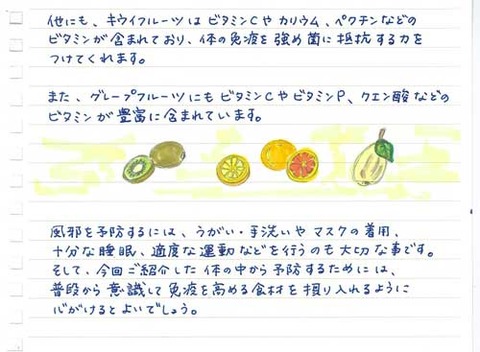 他にも、キウイフルーツはビタミンCやカリウム、ペクチンなどの
ビタミンが含まれており、体の免疫を強め菌に抵抗する力を
つけてくれます。
また、グレープフルーツにもビタミンCやビタミンP、クエン酸などの
ビタミンが豊富に含まれています。
風邪を予防するには、うがい・手洗いやマスクの着用、
十分な睡眠、適度な運動などを行うのも大切な事です。
そして、今回ご紹介した体の中から予防するためには、
普段から意識して免疫を高める食材を摂り入れるように
心がけるとよいでしょう。